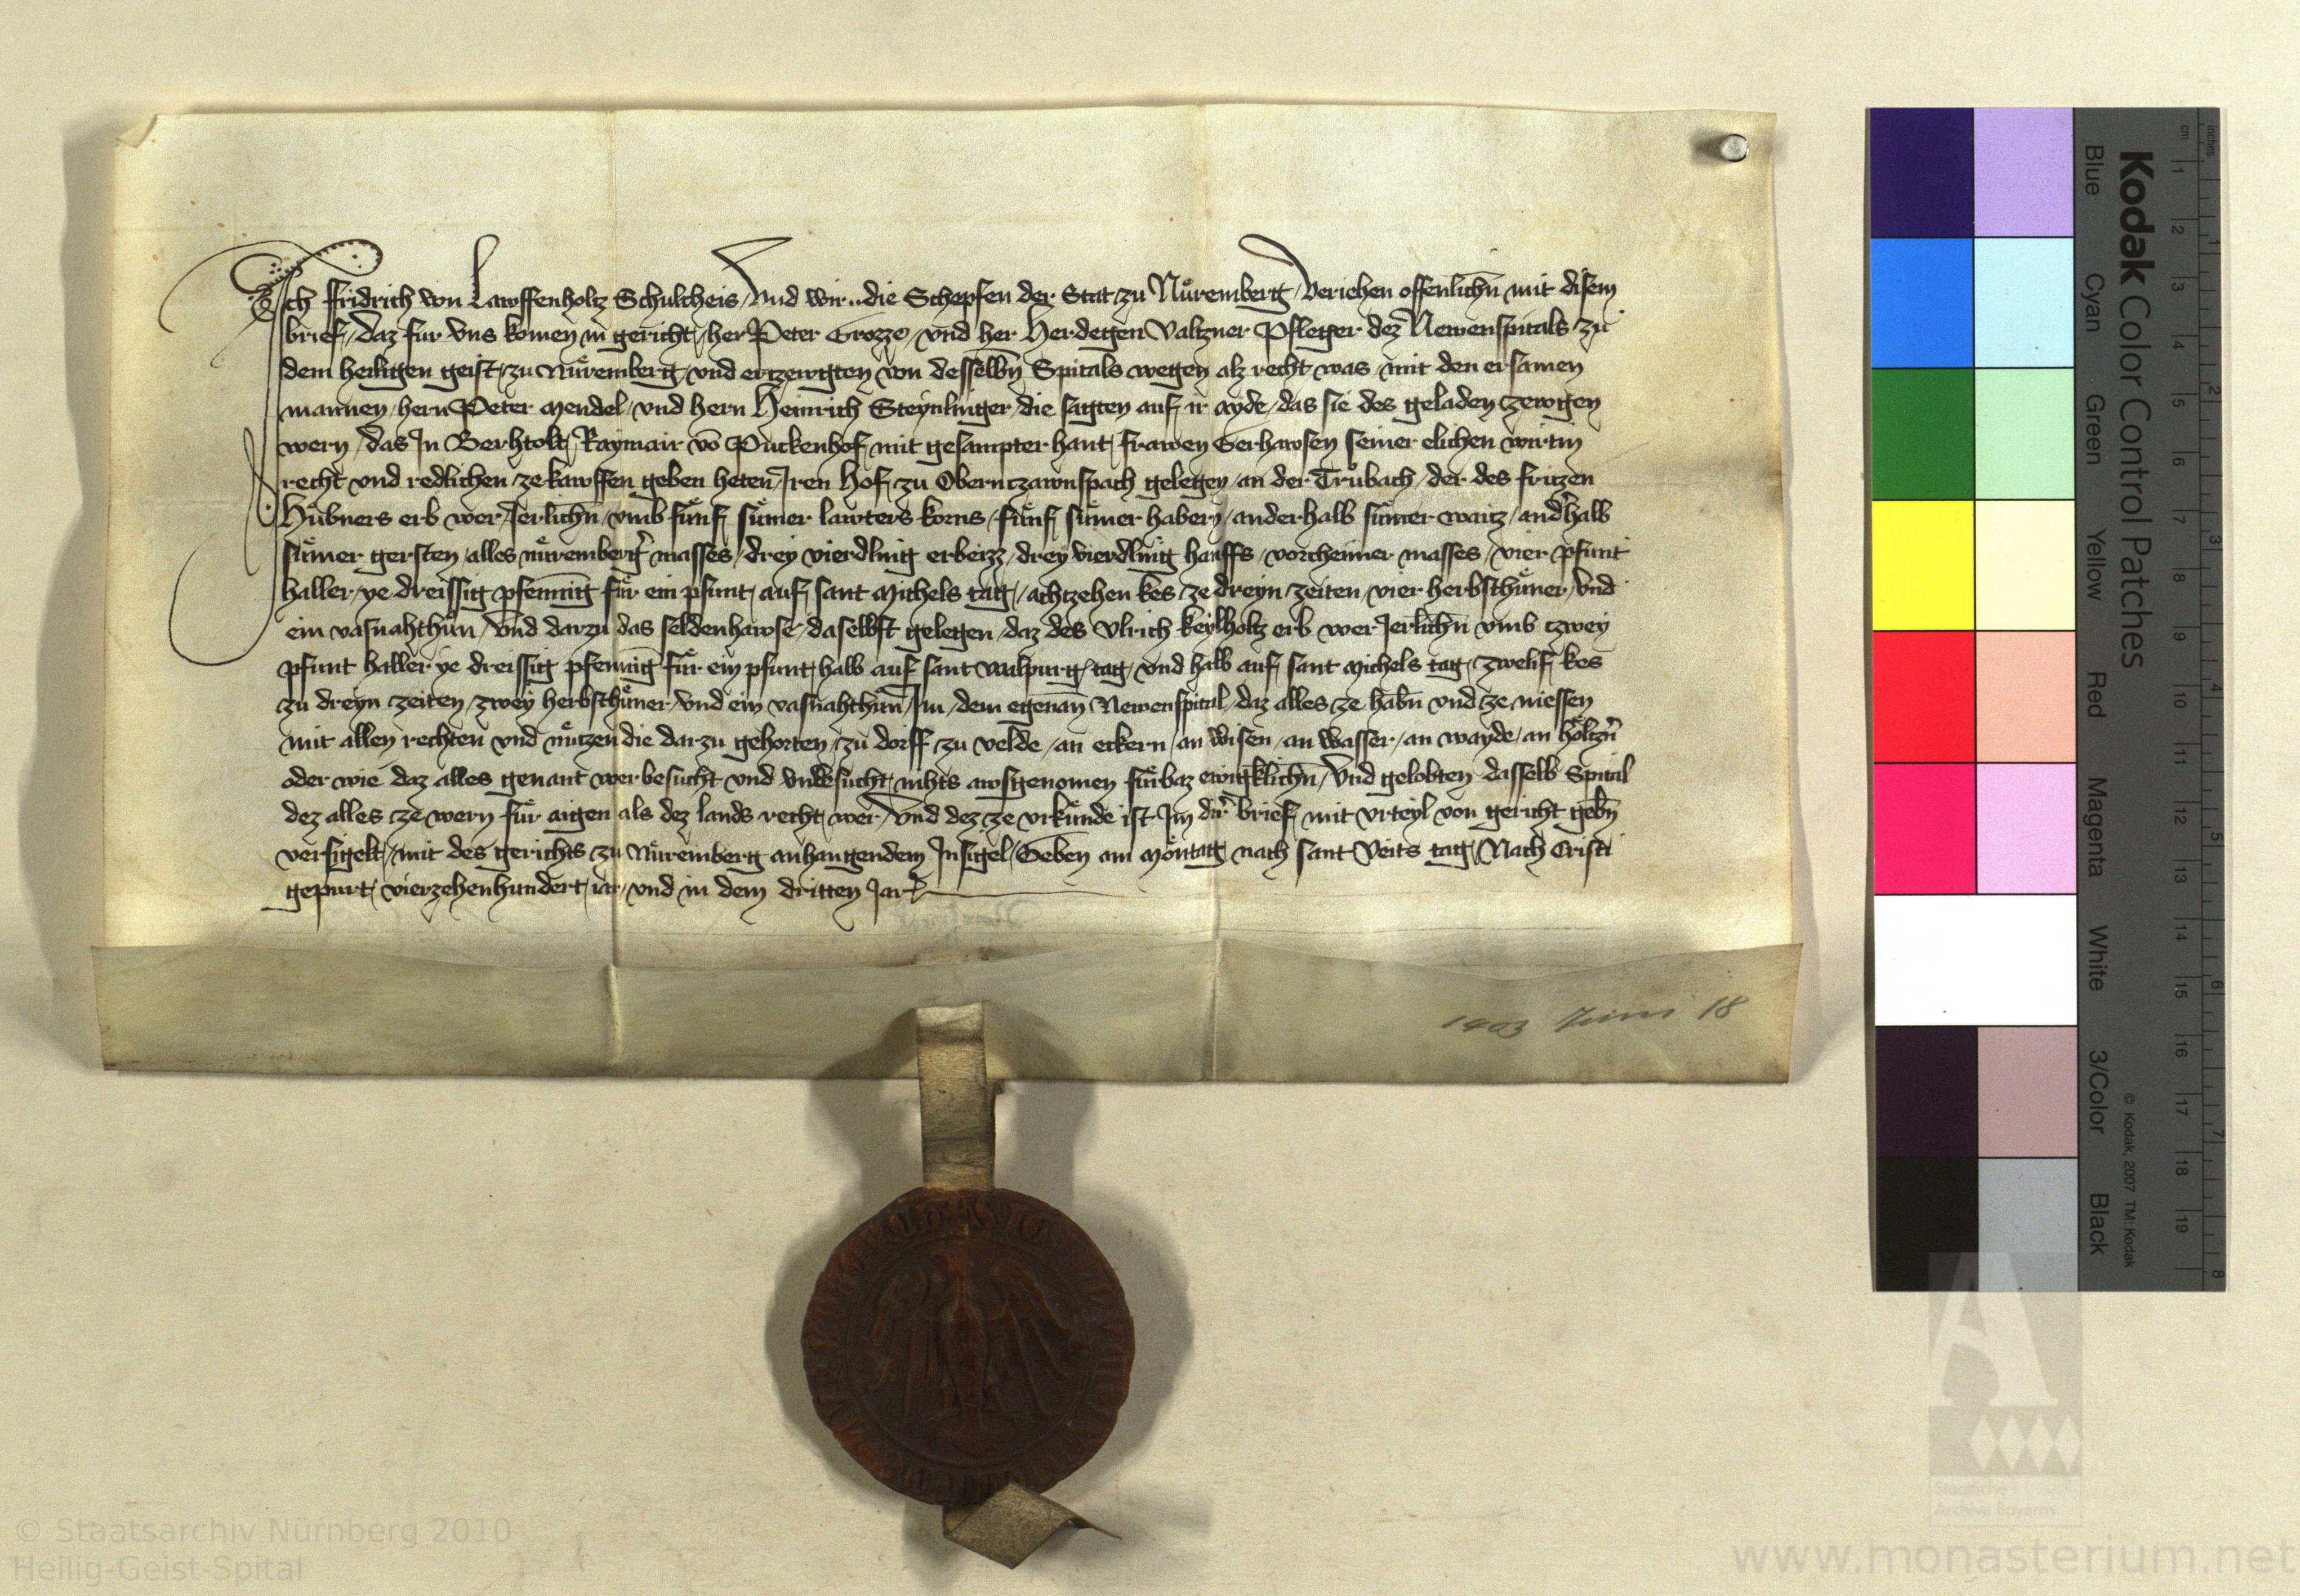 Ich Fridrich von Lawffenholtz Schultheis / vnd wir .. die Schepfen der Stat zu Nuͤremberg / veriehen offenlichn̄ mit disem
brief / daz fur vns komen in gericht / her Peter Grozze / vnd her Herdegen Valtzner Pfleger dez Newenspitals zu
dem heiligen geist / zu Nuͤremberg / vnd ertzewgten von desselbn̄ Spitals wegen alz recht was / mit den ersamen
mannen / hern Peter Mendel / vnd hern Heinrich Steynlinger / die sagten auf ir ayde / das sie des geladen zewgen
wern / das In Berhtolt Raymair vō Puckenhof mit gesampter hant / frawen Gerhawsen seiner elichen wirtin
recht vnd redlichen ze kawffen geben heten / Iren Hof zu Obernczawnspach gelegen / an der Truͦbach / der des Fritzen
Huͤbners erb wer / Ierlichn̄ / vmb fuͤnf suͤmer lawters korns / fuͤnf suͤmer habern / anderhalb suͤmer waitz / and͛halb
suͤmer gersten / alles nuͤremberg͛ masses / drey vierdling erbeizz / drey vierdling hanffs / vorcheimer masses / vier pfunt
haller / ye dreissig pfenning fuͤr ein pfunt / auf sant Michels tag / achtzehen kes / ze dreyn zeiten / vier herbsthuͤner / vnd
ein vasnahthuͤn / vnd darzu das seldenhawse daselbst gelegen / daz des Vlrich Keylholtz erb wer Ierlichn̄ vmb tzwey
pfunt haller ye dreissig pfenning fuͤr ein pfunt / halb auf sant Walpurg tag / vnd halb auf sant Michels tag / zwelif kes
zu dreyn zeiten / zwey herbsthuͤner / vnd ein vasnahthuͤn / Im / dem egenan̄ Newenspital / daz alles ze habn̄ vnd ze niessen
mit allen rechten vnd nuͤtzen die darzu gehorten / zu dorff zu velde / an eckern / an wisen / an wasser / an wayde / an hoͤltzn͛
oder wie daz alles genant wer besucht vnd vnbesucht / nihts awsgenomen fuͤrbaz ewigklichn̄ / vnd gelobten dasselb Spital
dez alles ze wern fuͤr aigen als dez lands recht wer / vnd dez ze vrkuͤnde ist Im dir͛ brief mit vrteyl von gericht gebn̄
versigelt / mit des gerichts zu Nuͤremberg anhangendem Insigel / Geben am Moͤntag nach sant Veits tag / Nach Cristi
gepurt / vierzehenhundert iar / vnd in dem dritten Jar
1403 Juni 18
Kodak Color Control Patches
Blue Cyan Green Yellow Red Magenta White 3/Color Black
© Kodak, 2007 TM: Kodak
cm 1 2 3 4 5 6 7 8 9 10 11 12 13 14 15 16 17 18 19
inches 1 2 3 4 5 6 7 8
Staatliche
Archive Bayerns
© Staatsarchiv Nürnberg 2010
Heilig-Geist-Spital
www.monasterium.net